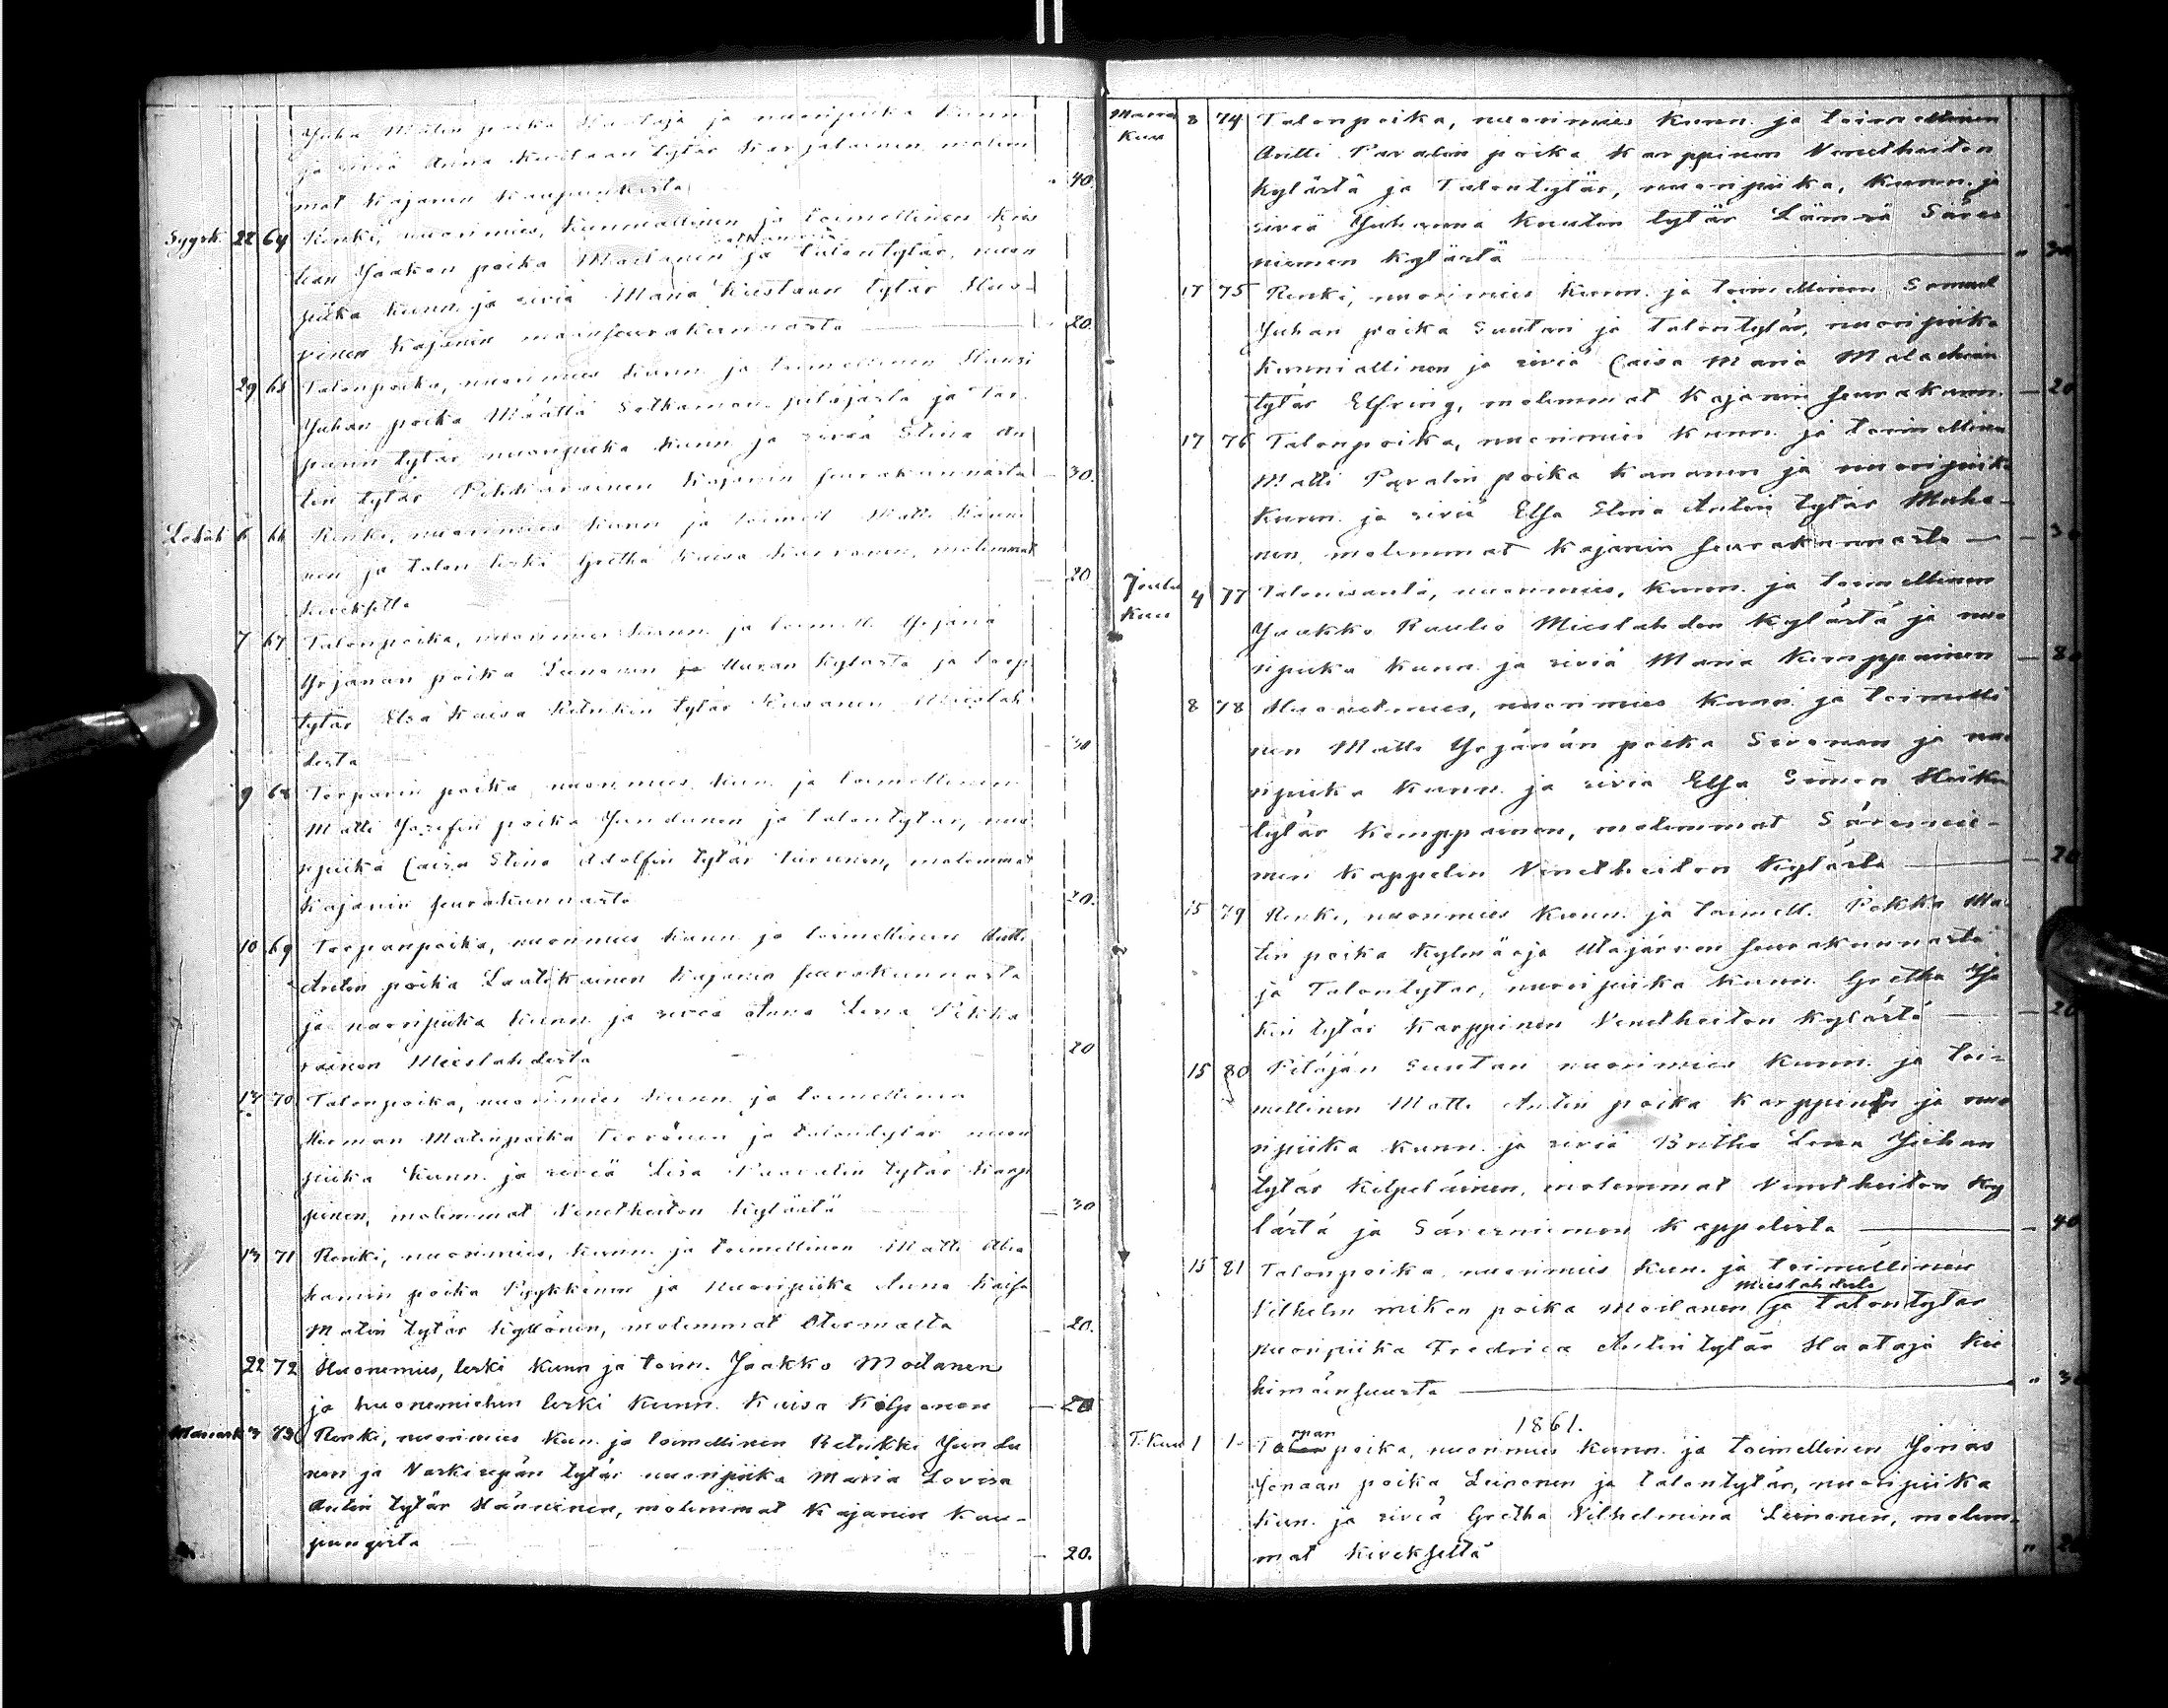 Juha Matin poika Haataja ja nuoripiika kunn
ja siviä Anna Kustaan tytär Karjalainen molem
mat Kajanin kaupunkista " 40.
Syysk. 22 64 Renki, nuorimies, kunniallinen ja toimellinen
Jaakon poika Moilanen ja talontytär, nuori
piika kunn. ja siviä Maria Kustaan tytär
pinen Kajanin maaseurakunnasta " 20.
29 65 Talonpoika, nuorimies kunn. ja toimellinen Hansi
Juhan poika Määttä Sotkamon pitäjästä ja Tor
parin tytär nuoripiika kunn ja siviä Stina An
tin tytär Pikkarainen Kajanin seurakunnasta — 30.
Lokak 6 66 Renki, nuorimies kunn ja toimell Matti
nen ja talon leski Gretha Kaisa Karvonen, molemmat
Kivekseltä — 20
7 67 Talonpoika, nuorimies kunn. ja toimell. Yrjänä
Yrjänän poika Leinonen ja Uuran kylästä ja Torp
tytär Elsa Kaisa Petrikin tytär Rusanen Mieslah
desta — 30
9 68 Torparin poika nuorimies kun. ja toimellinen
Matti Josefin poika Jundunen ja talontytär, nuo
ripiika Caisa Stina Adolfin tytär Turunen, molemmat
Kajanin seurakunnasta 20.
10 69 Torpanpoika, nuorimies kunn ja toimellinen Antti
Antin poika Laatikainen Kajanin seurakunnasta
ja nuoripiika kunn ja siviä Anna Lena Pikka
rainen Mieslahdesta — 20
13 70 Talonpoika, nuorimies kunn. ja toimellinen
Herman Matinpoika Tervonen ja talontytär nuori
piika kunn. ja siviä Lisa Paavalin tytär Karp
pinen, molemmat Venetheiton kylästä — 30
13 71 Renki, nuorimies, kunn. ja toimellinen Matti Abra
hamin poika Pyykkönen ja nuoripiika Anna Kaisa
Matin tytär Kyllönen, molemmat Otermasta — 20.
22 72 Huonemies, leski kunn ja toim. Jaakko Moilanen
ja huonemiehen leski kunn. Kaisa Kilponen — 20
Marrask 3 73 Renki, nuorimies kun. ja toimellinen Petrikki Jundu
nen ja Värkisepän tytär nuoripiika Maria Lovisa
Antin tytär Hänninen, molemmat Kajanin kau-
pungista — 20.
Marras
kuu 8 74 Talonpoika, nuorimies kunn. ja toimellinen
Antti Paavalin poika Karppinen Venetheiton
kylästä ja Talontytär, nuoripiika, kunn. ja
siviä Juhanna Knuutin tytär Lämsä Säres
niemen kylästä " 30
17 75 Renki, nuorimies kunn. ja toimellinen Samuel
Juhan poika Suutari ja talontytär, nuoripiika
kunniallinen ja siviä Caisa Maria Malachian
tytär Elfving, molemmat Kajanin seurakunn. — 20
17 76 Talonpoika, nuorimies kunn. ja toimellinen
Matti Pavalin poika Kananen ja nuoripiik.
kunn. ja siviä Elsa Stina Antin tytär Muho-
nen, molemmat Kajanin seurakunnasta — 30
Joulu
kuu 4 77 Talonisäntä, nuorimies, kunn. ja toimellinen
Jaakko Raulio Mieslahden kylästä ja nuo
ripiika kunn. ja siviä Maria Kemppainen — 80
8 78 Huonemies, nuorimies kunn. ja toimelli
nen Matti Yrjänän poika Sivonen ja nuo
ripiika kunn. ja siviä Elsa Simon Heikin
tytär Kemppainen, molemmat Säresnie-
men kappelin Venetheiton kylästä — 20
15 79 Renki, nuorimies kunn. ja toimell. Pekka Ma
tin poika Kylmäoja Utajärven seurakunnasta
ja Talontytär, nuoripiika kunn. Gretha
kin tytär Karppinen Venetheiton kylästä — 20
15 80 Pitäjän Suutari nuorimies kunn. ja toi-
mellinen Matti Antin poika Karppinen ja nuo
ripiika kunn. ja siviä Britha Lena Juhan
tytär Kilpeläinen, molemmat Venetheiton ky
lästä ja Säresniemen kappelista — 40
15 81 Talonpoika nuorimies kun. ja toimellinen
Mieslahdesta
Vilhelm Mikon poika Moilanen ja talontytär
nuoripiika Fredrica Antin tytär Haataja Kii
himänsuusta " 30
1861.
T.kuu 1 1. Torpan poika, nuorimies kunn. ja toimellinen Jonas
Jonaan poika Leinonen ja talontytär, nuoripiika
kun. ja siviä Gretha Vilhelmina Leinonen, molem-
mat Kivekseltä " 20